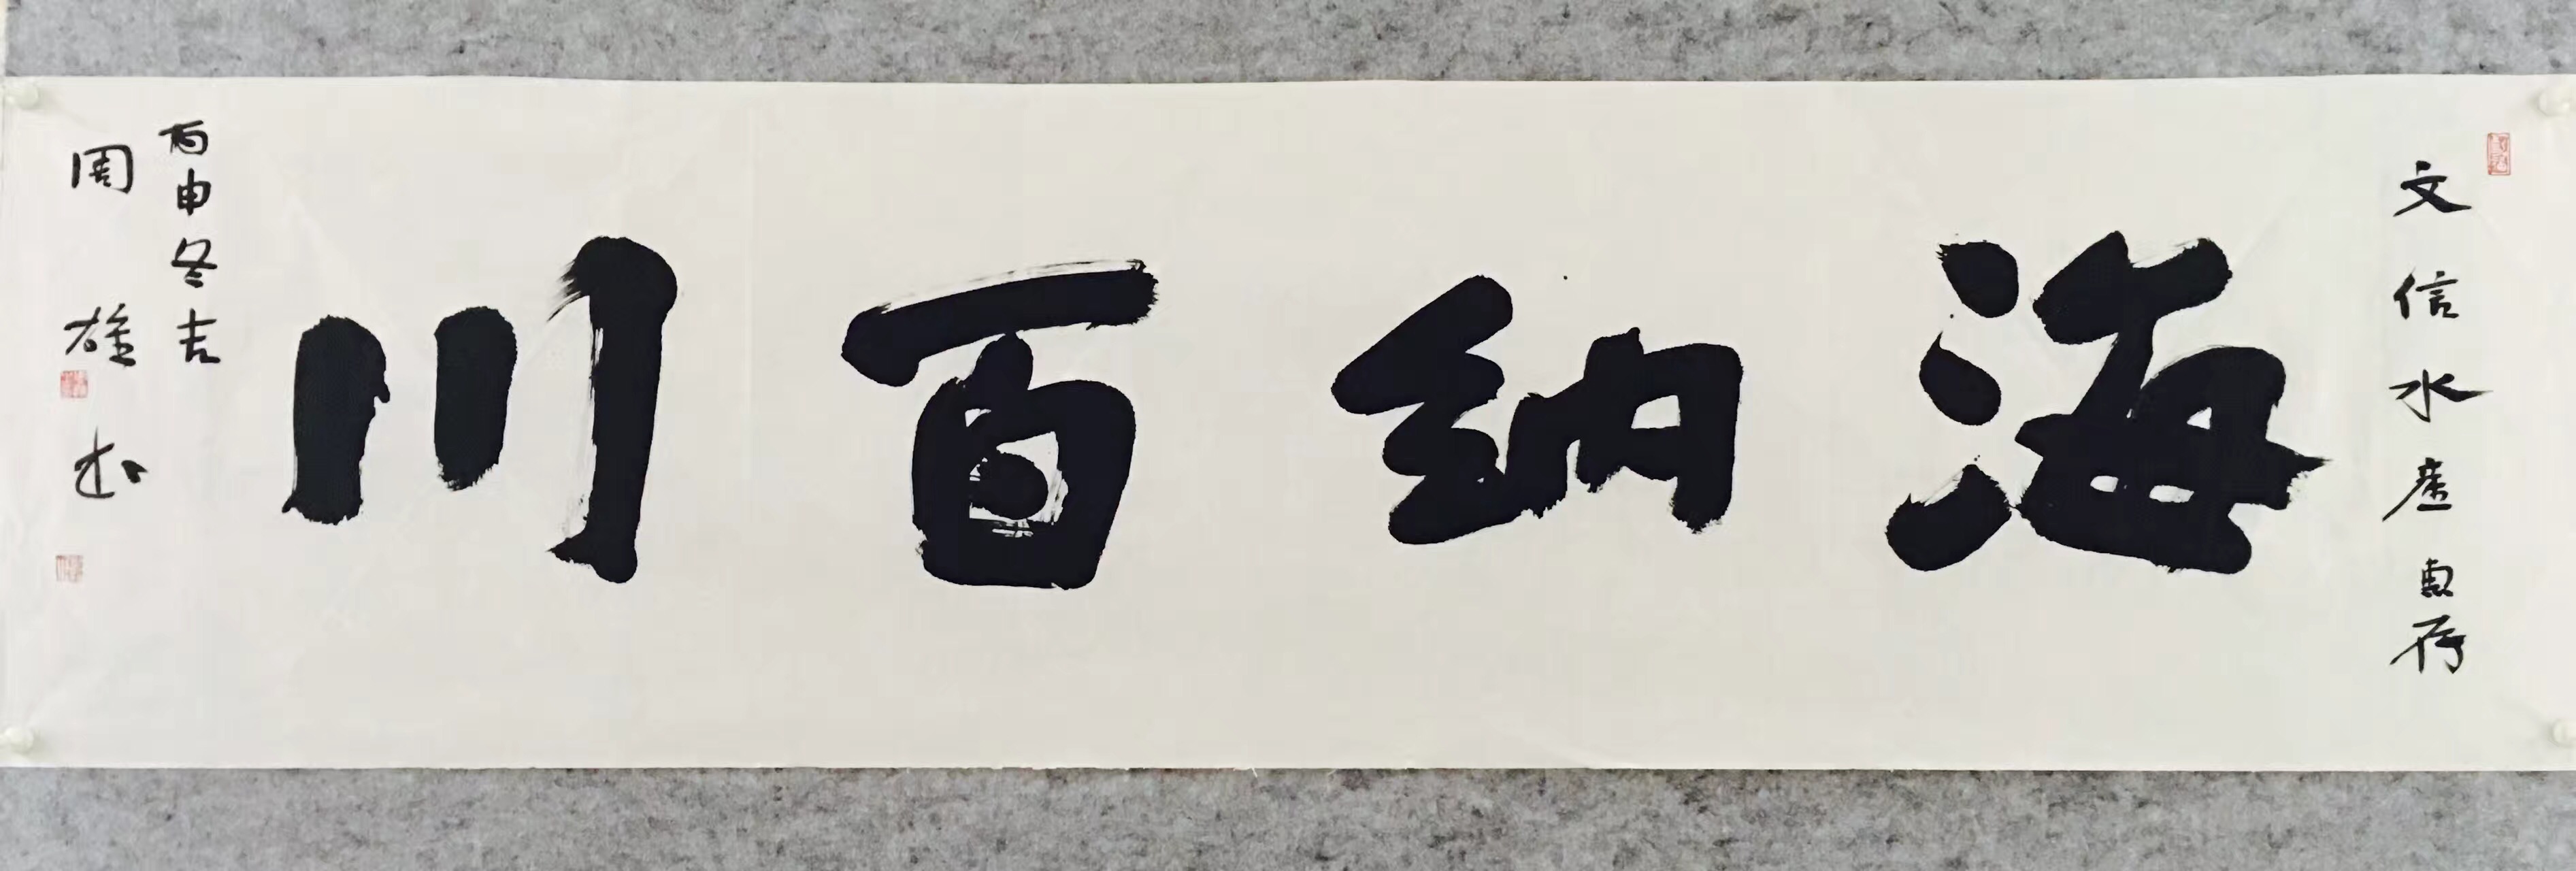 文信水产惠存
海纳百川
丙申冬吉
周雄书